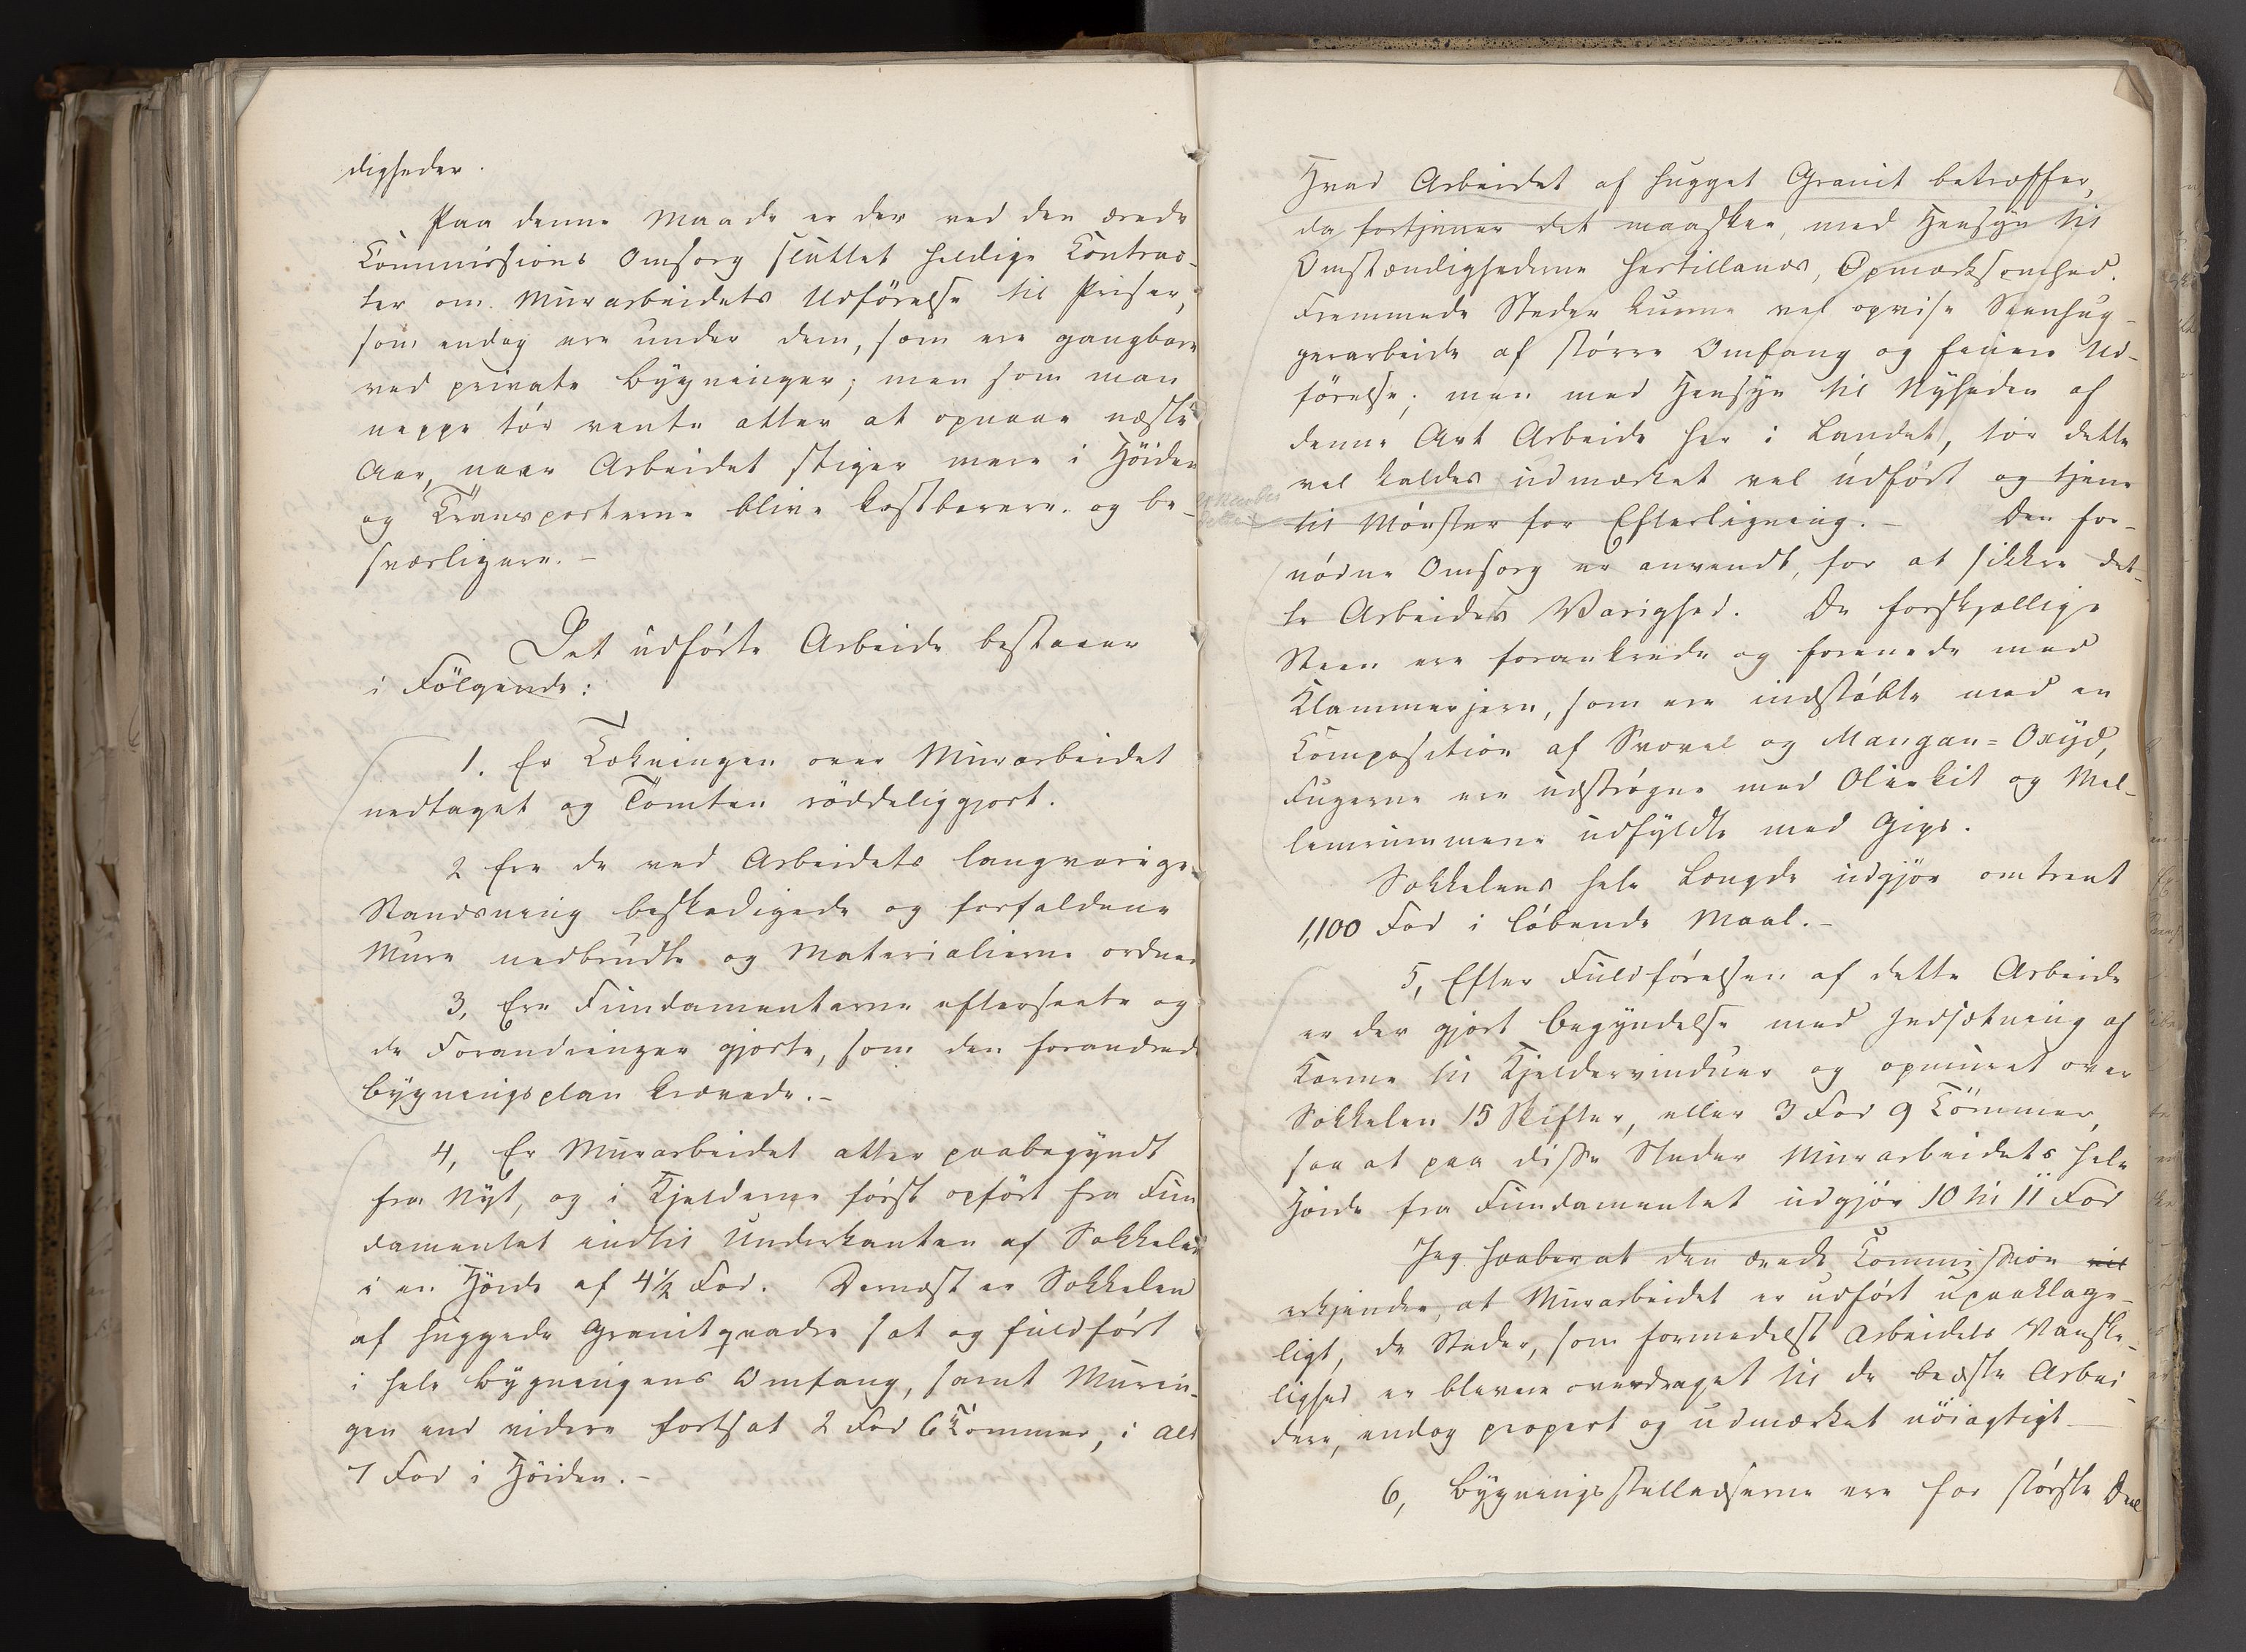 digheder.
Paa denne Maade er der ved den ærede
Commissions Omsorg sluttet heldige Contrac-
ter om Murarbeidets Udförelse til Priser,
som endog ere under dem, som ere gangbare
ved private Bygninger; men som man
neppe tör vente atter at opnaae næste
Aar, naar Arbeidet stiger mere i Höiden
og Transporterne blive kostbarere og be-
sværligere. –
Det udförte Arbeide bestaaer
i Fölgende:
1. Er Tækningen over Murarbeidet
nedtaget og Tomten röddeliggjort.
2 Ere de ved Arbeidets langvarige
Standsning beskadigede og forfaldene
Mure nedbrudte og Materialierne ordnede
3, Ere Fundamenterne efterseete og
de Forandringer gjorte, som den forandrede
Bygningsplan krævede. –
4, Er Murarbeidet atter paabegyndt
fra Nyt, og i Kjelderne först opfört fra Fun
damentet indtil Underkanten af Sokkelen
i en Höide af 4½ Fod. Dernæst er Sokkelen
af huggede Granitqvadre sat og fuldfört
i hele Bygningens Omfang, samt Murin-
gen end videre fortsat 2 Fod 6 Tommer, i Alt
7 Fod i Höiden. –
Hvad Arbeidet af hugget Granit betræffer,
da fortjener det maaskee, med Hensyn til
Omstændighederne hertillands, Opmærksomhed.
Fremmede Steder kunne vel opvise Steenhug-
gerarbeide af större Omfang og finere Ud-
förelse; men med Hensyn til Nyheden af
denne Art Arbeide her i Landet, tör dette
vel kaldes udmærket vel udfört og tjene
til Mönster for Efterligning. – Den for-
nödne Omsorg er anvendt, for at sikkre det-
te Arbeides Varighed. De forskjællige
Steen ere forankrede og forenede med
Klammerjern, som ere indstöbte med en
Composition af Svovel og Mangan-Oxyd,
Fugerne ere udströgne med Oliekit og Mel-
lemrummene udfyldte med Gips.
Sokkelens hele Længde udgjör omtrent
1,100 Fod i löbende Maal. –
5, Efter Fuldförelsen af dette Arbeide
er der gjort Begyndelse med Indsætning af
Karme til Kjeldervinduer og opmuret over
Sokkelen 15 Skifter, eller 3 Fod 9 Tommer,
saa at paa disse Steder Murarbeidets hele
Höide fra Fundamentet udgjör 10 til 11 Fod
Jeg haaber at den ærede Commission vil
erkjender, at Murarbeidet er udfört upaaklage-
ligt, de Steder, som formedelst Arbeidets Vanske-
lighed er blevne overdraget til de bedste Arbei-
dere, endog propert og udmærket nöiagtigt –
6, Bygningsstilladserne ere for störste Deel